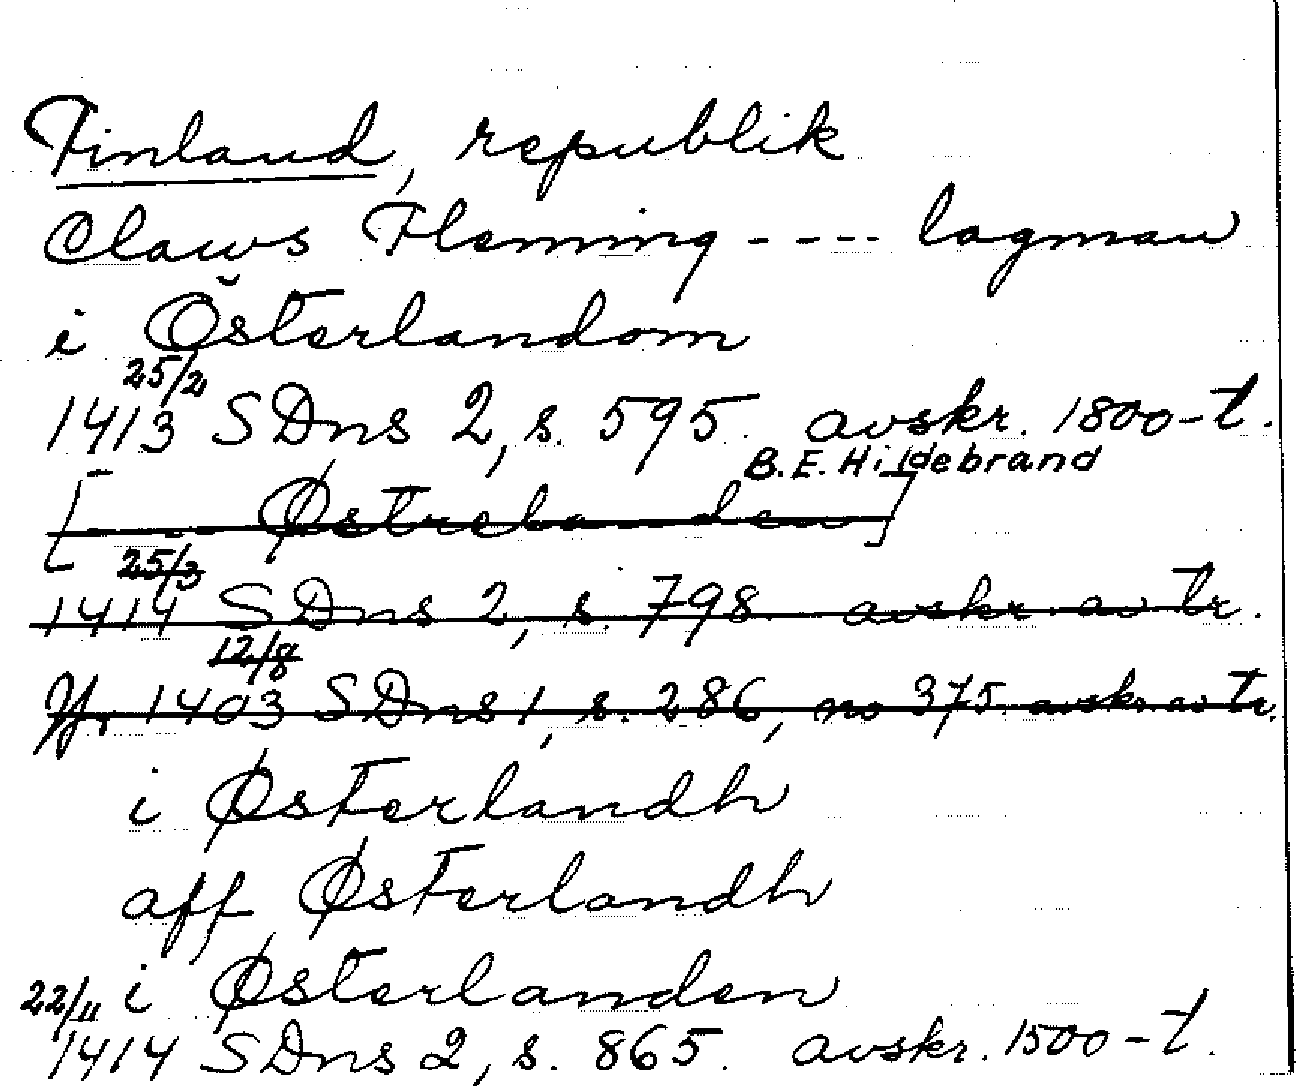 Finland, republik
Claws Fleming ---- lagman
i Österlandom
25/2
1413 SDns 2, s. 595. avskr. 1800-t.
B.E. Hildebrand
[--- Østrelanden]
25/3
1414 SDns 2, s. 798 avskr. av tr.
12/8
1403 SDns 1, s. 286, no 375 avskr. av tr.
i Østerlandh
aff Østerlandh
22/11 i Østerlanden
1414 SDns 2, s. 865. avskr. 1500-t.